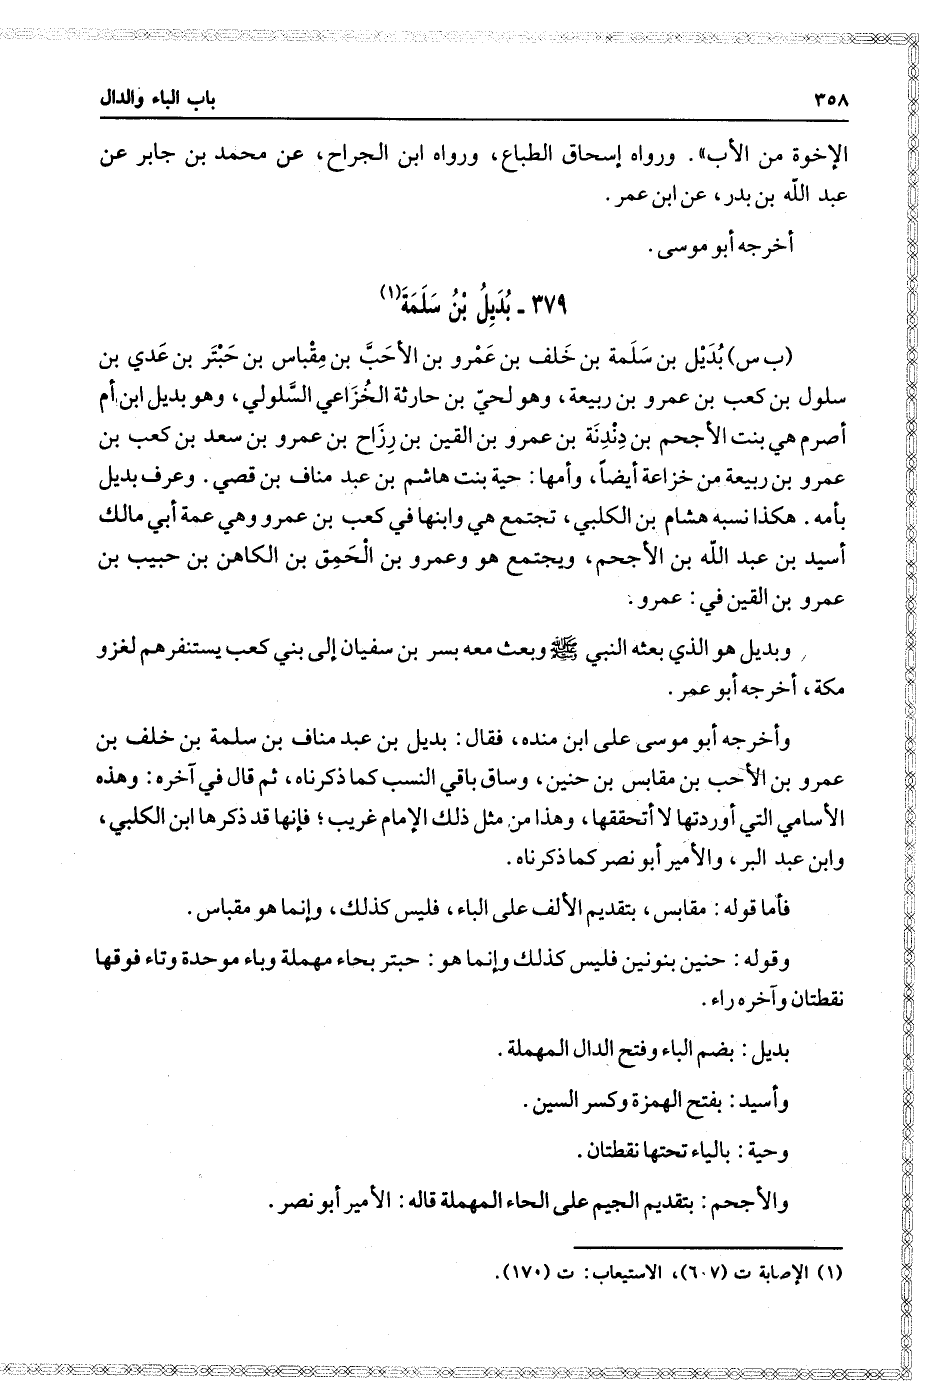 ٣٥٨ باب الباء والدال
الإخوة من الأب». ورواه إسحاق الطباع، ورواه ابن الجراح، عن محمد بن جابر عن
عبد اللّه بن بدر، عن ابن عمر.
أخرجه أبو موسى.
٣٧٩ ـ بُدَيلُ بْنُ سَلَمَةَ(١)
(ب س) بُدَيْل بن سَلَمة بن خَلف بن عَمْرو بن الأحَبَّ بن مِقْباس بن حَبْتَر بن عَدي بن
سلول بن كعب بن عمرو بن ربيعة، وهو لحيّ بن حارثة الخُزَاعي السَّلولي، وهو بديل ابن أم
أصرم هي بنت الأجحم بن دِنْدِنَة بن عمرو بن القين بن رِزَاح بن عمرو بن سعد بن كعب بن
عمرو بن ربيعة من خزاعة أيضاً، وأمها: حية بنت هاشم بن عبد مناف بن قصي. وعرف بديل
بأمه. هكذا نسبه هشام بن الكلبي، تجتمع هي وابنها في كعب بن عمرو وهي عمة أبي مالك
أسيد بن عبد اللّه بن الأجحم، ويجتمع هو وعمرو بن الْحَمِق بن الكاهن بن حبيب بن
عمرو بن القين في: عمرو.
وبديل هو الذي بعثه النبي ﷺ وبعث معه بسر بن سفيان إلى بني كعب يستنفرهم لغزو
مكة، أخرجه أبو عمر.
وأخرجه أبو موسى على ابن منده، فقال: بديل بن عبد مناف بن سلمة بن خلف بن
عمرو بن الأحب بن مقابس بن حنين، وساق باقي النسب كما ذكرناه، ثم قال في آخره: وهذه
الأسامي التي أوردتها لا أتحققها، وهذا من مثل ذلك الإمام غريب؛ فإنها قد ذكرها ابن الكلبي،
وابن عبد البر، والأمير أبو نصر كما ذكرناه.
فأما قوله: مقابس، بتقديم الألف على الباء، فليس كذلك، وإنما هو مقباس.
وقوله: حنين بنونين فليس كذلك وإنما هو: حبتر بحاء مهملة وباء موحدة وتاء فوقها
نقطتان وآخره راء.
بديل: بضم الباء وفتح الدال المهملة.
وأسيد: بفتح الهمزة وكسر السين.
وحية: بالياء تحتها نقطتان.
والأجحم: بتقديم الجيم على الحاء المهملة قاله: الأمير أبو نصر.
(١) الإصابة ت (٦٠٧)، الاستيعاب: ت (١٧٠).